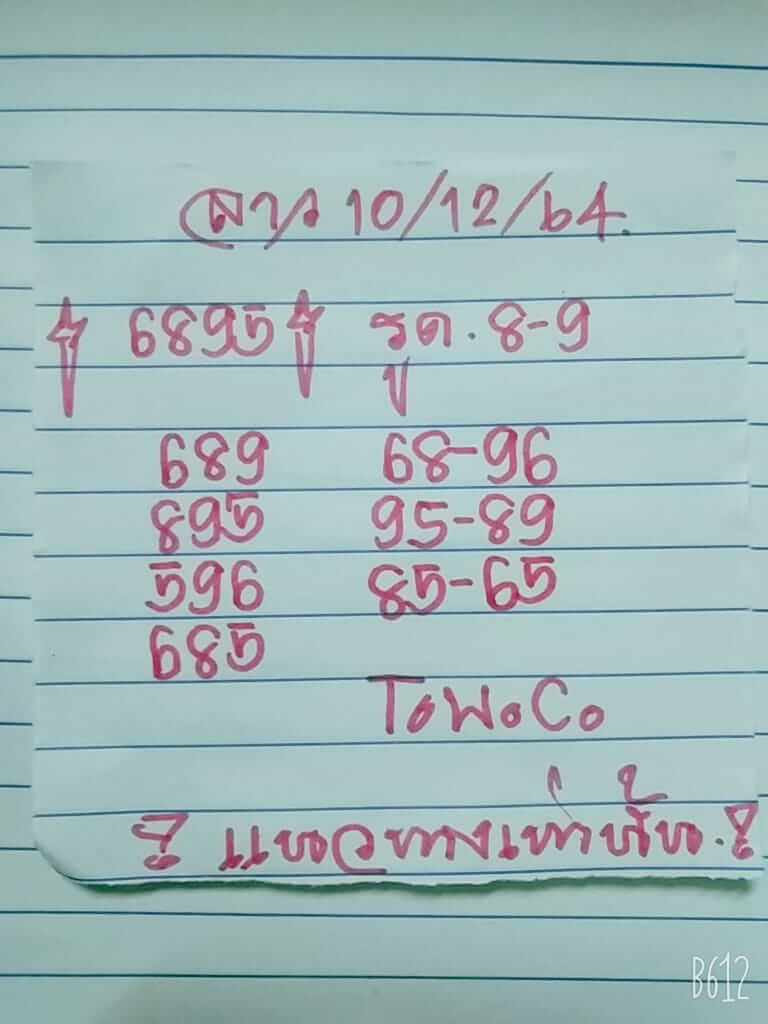 ลาว 10/12/64.
6895 รูด. 8-9
689 68-96
895 95-89
596 85-65
685
T.W.C.
! แนวทางเท่านั้น. !
B612